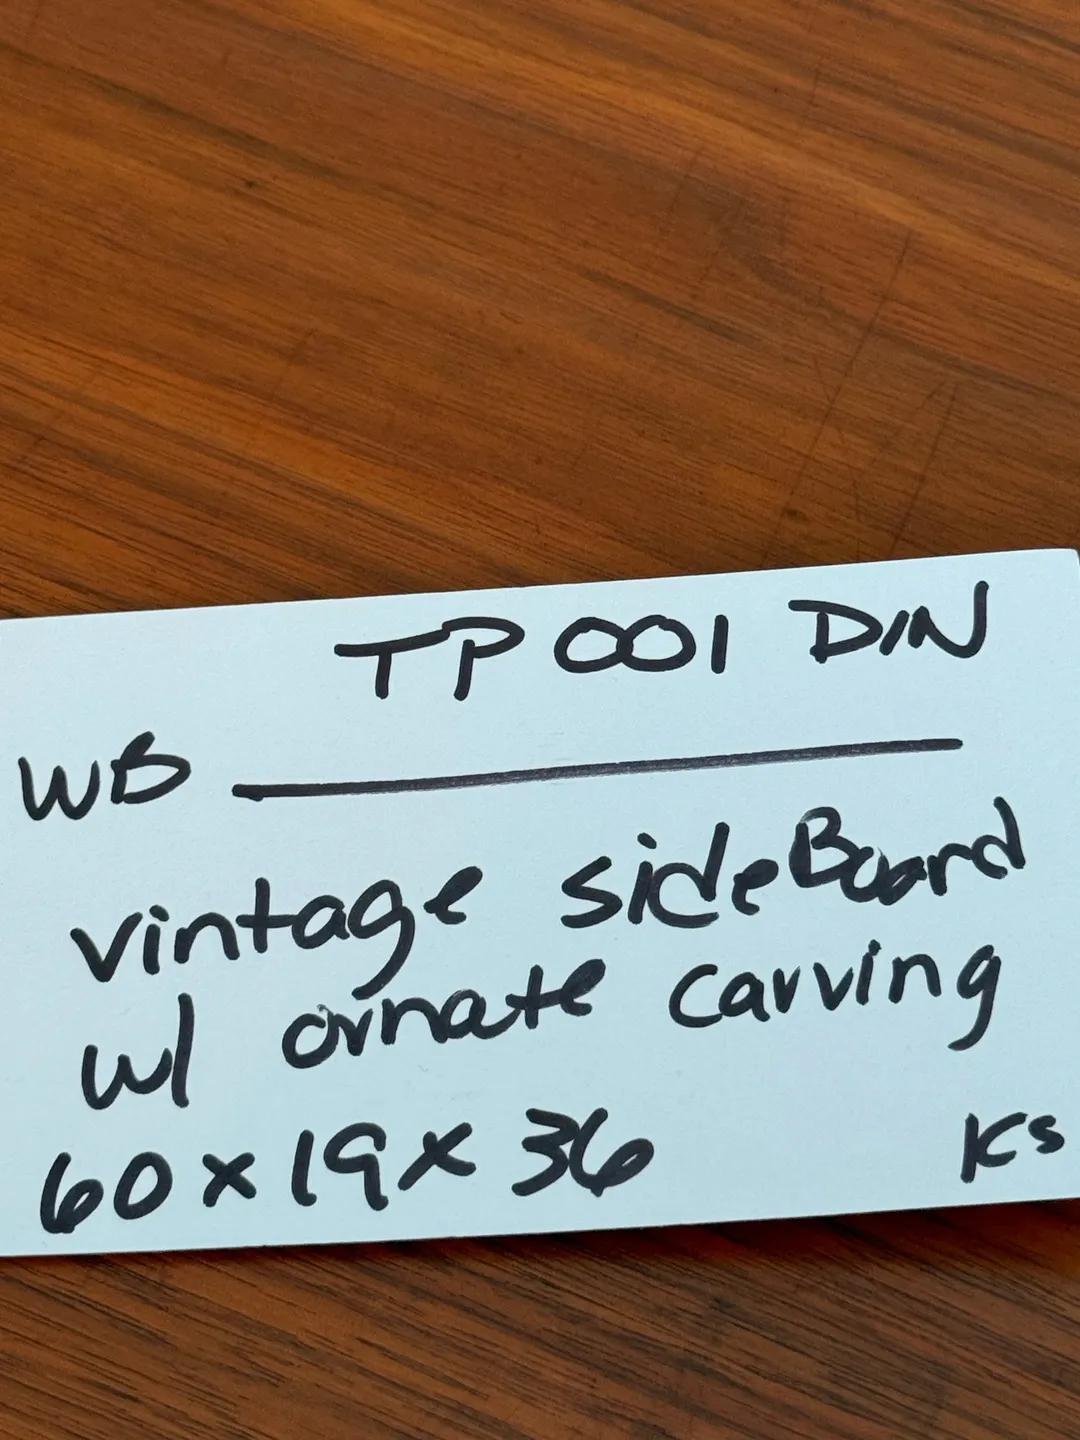 TP 001 DIN
WB
vintage sideBoard
w/ ornate carving
60 x 19 x 36 KS